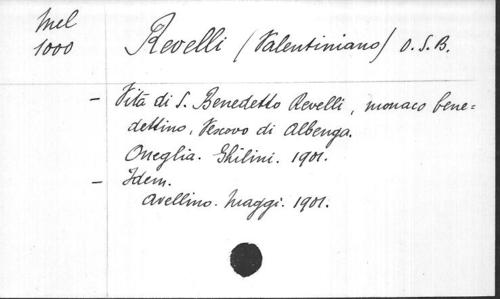 Mel
1000
Revelli (Valentiniano) O.S.B.
- Vita di S. Benedetto Revelli, monaco bene=
dettino, Vescovo di Albenga.
Oneglia. Ghilini. 1901.
- Idem.
Avellino. Maggi. 1901.